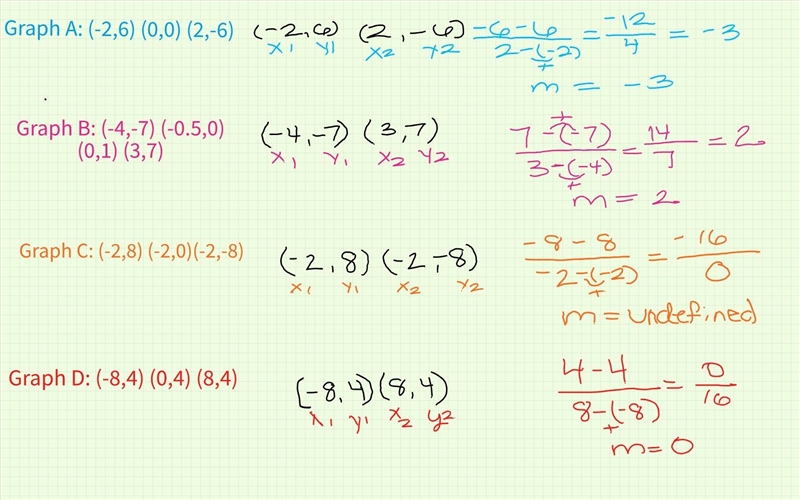 Graph A: (-2,6) (0,0) (2,-6) (-2,6) (2,-6) -6-6/2-(-2) = -12/4 = -3
x1 y1 x2 y2 +
m = -3
Graph B: (-4,-7) (-0.5,0) (-4,-7) (3,7) 7-(-7)/3-(-4) = 14/7 = 2
(0,1) (3,7) x1 y1 x2 y2 + +
m = 2
Graph C: (-2,8) (-2,0)(-2,-8) (-2,8) (-2,-8) -8-8/-2-(-2) = -16/0
x1 y1 x2 y2 +
m = undefined
Graph D: (-8,4) (0,4) (8,4) (-8,4)(8,4) 4-4/8-(-8) = 0/16
x1 y1 x2 y2 +
m = 0